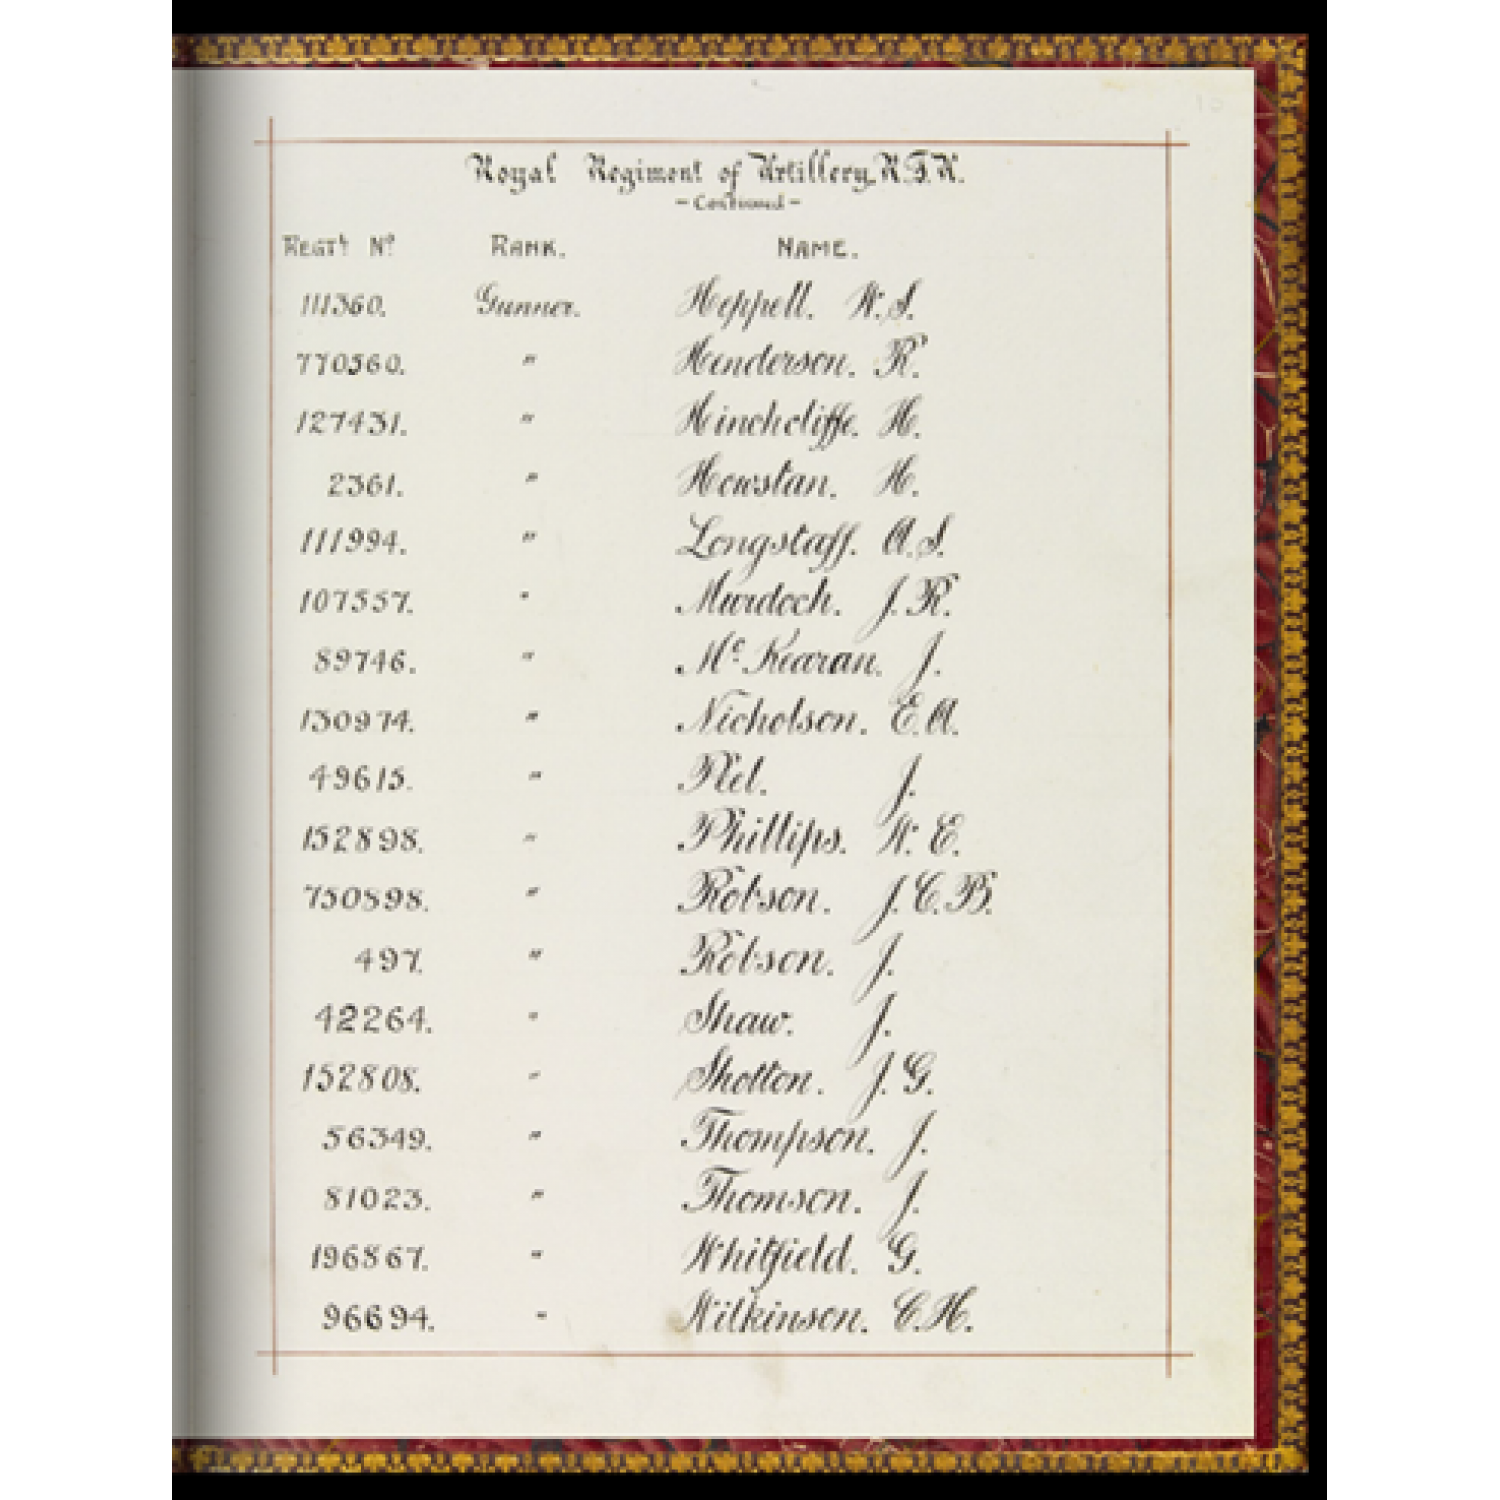 Royal Regiment of Artillery. R.F.A.
- Continued -
REGTL No RANK. NAME.
111360. Gunner. Heppell. W.S.
770360. " Henderson. R.
127431. " Hinchcliffe. H.
2361. " Howstan. H.
111994. " Longstaff. A.S.
107557. " Murdoch. J.R.
89746. " Mc Kearan. J.
130974. " Nicholson. E.A.
49615. " J.
152898. " Phillips. W.E.
750898. " Robson. J.C.B.
497. " Robson. J.
42264. " Shaw. J.
152808. " Shotton. J.G.
56349. " Thompson. J.
81023. " Thomson. J.
196867. " Whitfield. G.
96694. " Wilkinson. C.H.